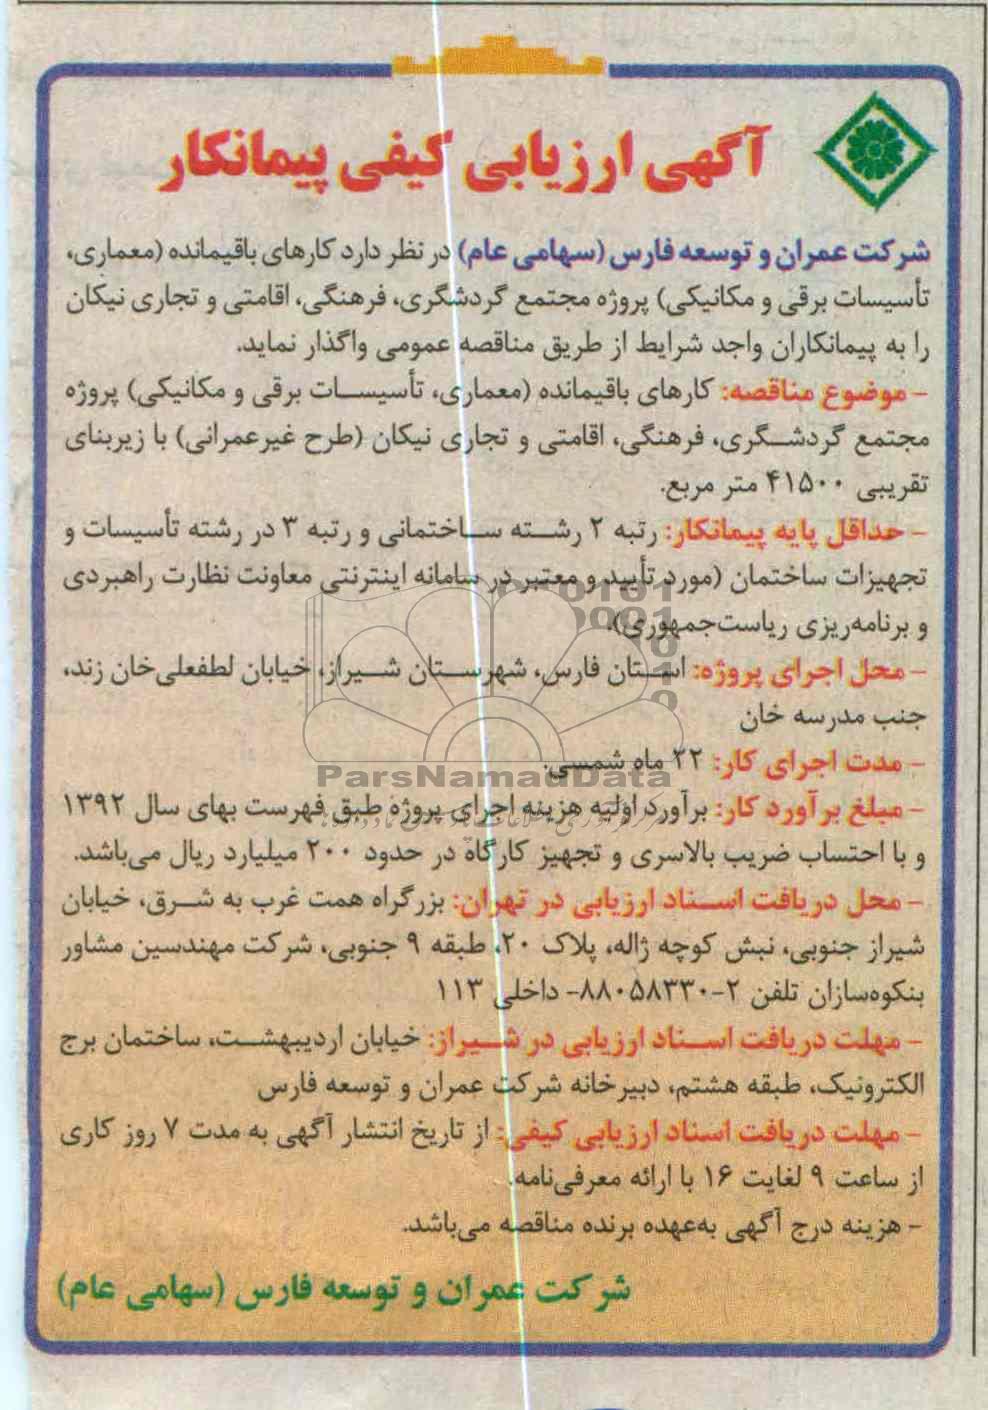 آگهی ارزیابی کیفی پیمانکار
شرکت عمران و توسعه فارس (سهامی عام) در نظر دارد کارهای باقیمانده (معماری،
تأسیسات برقی و مکانیکی) پروژه مجتمع گردشگری، فرهنگی، اقامتی و تجاری نیکان
را به پیمانکاران واجد شرایط از طریق مناقصه عمومی واگذار نماید.
- موضوع مناقصه: کارهای باقیمانده (معماری، تأسیسات برقی و مکانیکی) پروژه
مجتمع گردشگری، فرهنگی، اقامتی و تجاری نیکان (طرح غیرعمرانی) با زیربنای
تقریبی ۴۱۵۰۰ متر مربع.
- حداقل پایه پیمانکار: رتبه ۲ رشته ساختمانی و رتبه ۳ در رشته تأسیسات و
تجهیزات ساختمان (مورد تأیید و معتبر در سامانه اینترنتی معاونت نظارت راهبردی
و برنامه‌ریزی ریاست‌جمهوری).
- محل اجرای پروژه: استان فارس، شهرستان شیراز، خیابان لطفعلی‌خان زند،
جنب مدرسه خان
- مدت اجرای کار: ۲۲ ماه شمسی.
ParsNamadData
- مبلغ برآورد کار: برآورد اولیه هزینه اجرای پروژه طبق فهرست بهای سال ۱۳۹۲
و با احتساب ضریب بالاسری و تجهیز کارگاه در حدود ۲۰۰ میلیارد ریال می‌باشد.
- محل دریافت اسناد ارزیابی در تهران: بزرگراه همت غرب به شرق، خیابان
شیراز جنوبی، نبش کوچه ژاله، پلاک ۲۰، طبقه ۹ جنوبی، شرکت مهندسین مشاور
بنکوه‌سازان تلفن ۲-۸۸۰۵۸۳۳۰- داخلی ۱۱۳
- مهلت دریافت اسناد ارزیابی در شیراز: خیابان اردیبهشت، ساختمان برج
الکترونیک، طبقه هشتم، دبیرخانه شرکت عمران و توسعه فارس
- مهلت دریافت اسناد ارزیابی کیفی: از تاریخ انتشار آگهی به مدت ۷ روز کاری
از ساعت ۹ لغایت ۱۶ با ارائه معرفی‌نامه.
- هزینه درج آگهی به‌عهده برنده مناقصه می‌باشد.
شرکت عمران و توسعه فارس (سهامی عام)